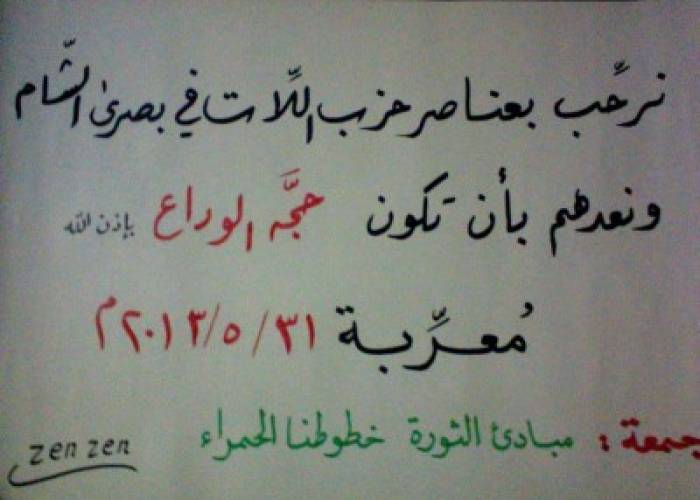 نرحِّب بعناصر حزب اللَّات في بصرى الشّام
ونعدهم بأن تكون حجَّه الوداع بإذن الله
مُعرِّبة ٣١/٥/٢٠١٣م
جمعة: مبادئ الثورة خطوطنا الحمراء
zen zen